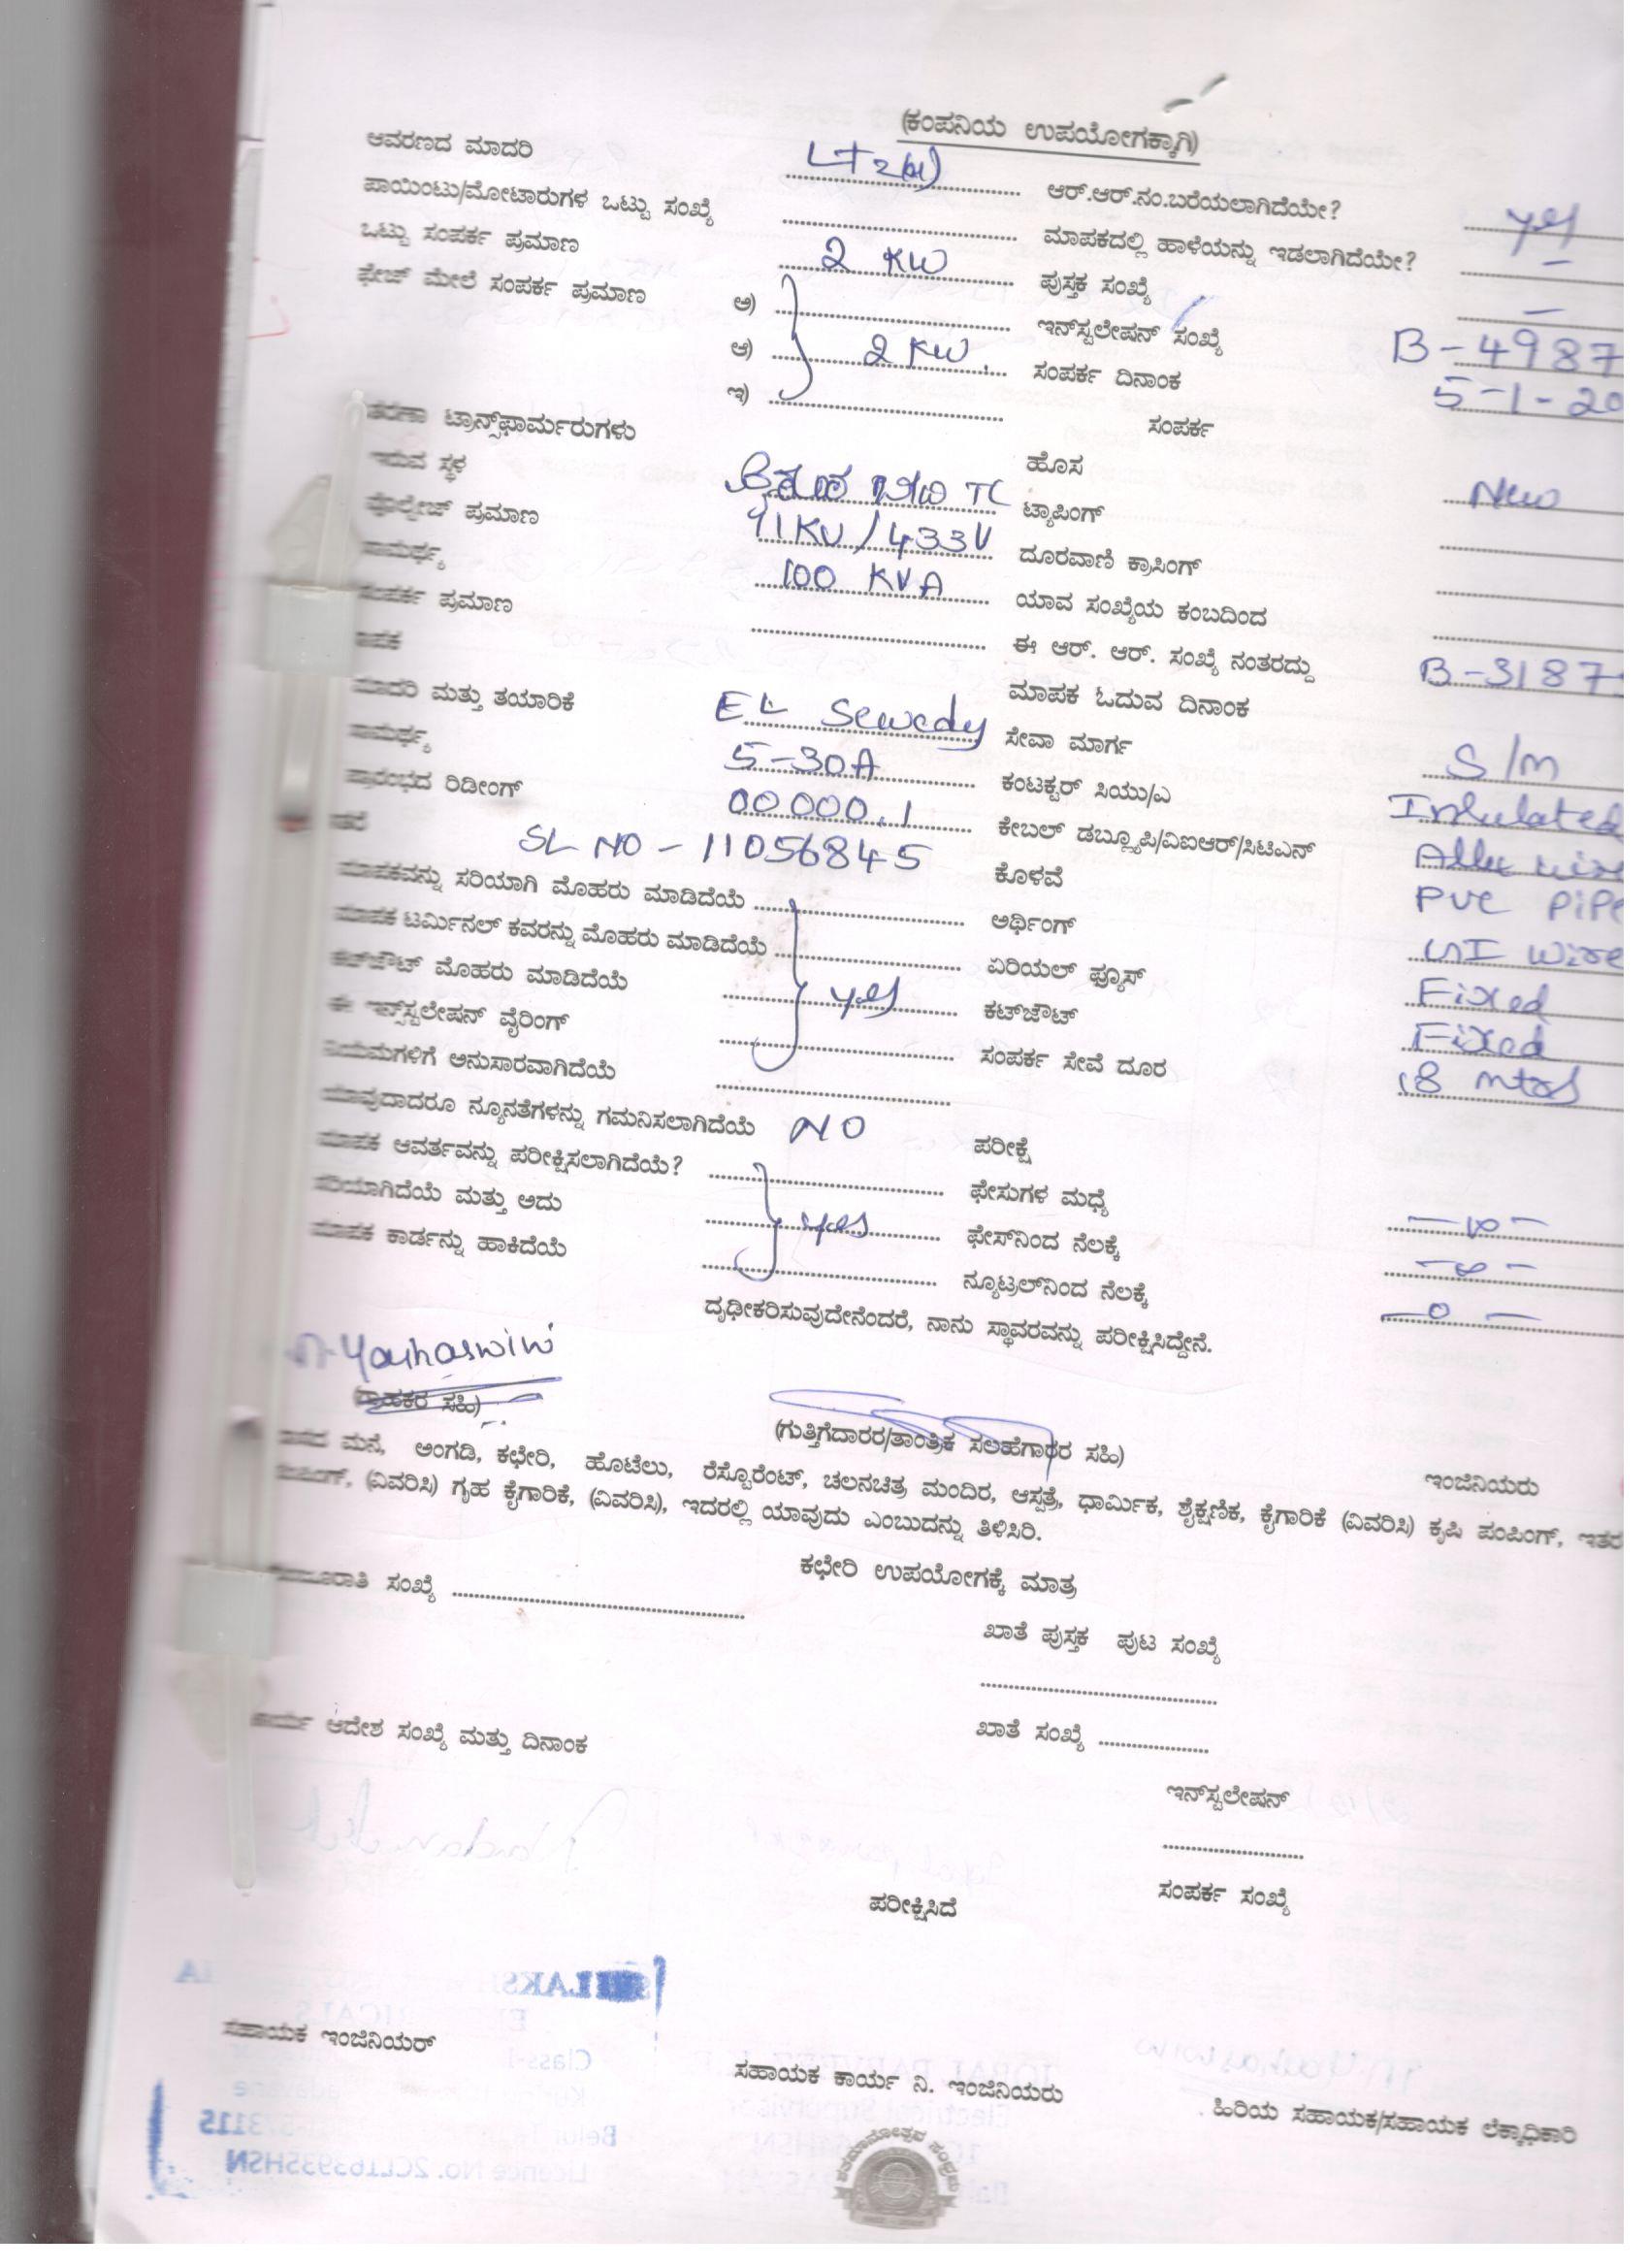 (ಕಂಪನಿಯ ಉಪಯೋಗಕ್ಕಾಗಿ)
ಆವರಣದ ಮಾದರಿ LT 2 ಆರ್.ಆರ್.ನಂ.ಬರೆಯಲಾಗಿದೆಯೇ? yes
ಪಾಯಿಂಟು/ಮೋಟಾರುಗಳ ಒಟ್ಟು ಸಂಖ್ಯೆ ಮಾಪಕದಲ್ಲಿ ಹಾಳೆಯನ್ನು ಇಡಲಾಗಿದೆಯೇ? —
ಒಟ್ಟು ಸಂಪರ್ಕ ಪ್ರಮಾಣ 2 KW ಪುಸ್ತಕ ಸಂಖ್ಯೆ —
ಫೇಜ್ ಮೇಲೆ ಸಂಪರ್ಕ ಪ್ರಮಾಣ ಅ) ಇನ್‌ಸ್ಟಲೇಷನ್ ಸಂಖ್ಯೆ B-4987
ಆ) 2 KW ಸಂಪರ್ಕ ದಿನಾಂಕ 5-1-20
ಇ) ಸಂಪರ್ಕ
ಟ್ರಾನ್ಸ್‌ಫಾರ್ಮರುಗಳು ಹೊಸ New
ಇರುವ ಸ್ಥಳ TC ಟ್ಯಾಪಿಂಗ್
ವೋಲ್ಟೇಜ್ ಪ್ರಮಾಣ 11KV/433V ದೂರವಾಣಿ ಕ್ರಾಸಿಂಗ್
ಸಾಮರ್ಥ್ಯ 100 KVA ಯಾವ ಸಂಖ್ಯೆಯ ಕಂಬದಿಂದ
ಸಂಪರ್ಕ ಪ್ರಮಾಣ ಈ ಆರ್. ಆರ್. ಸಂಖ್ಯೆ ನಂತರದ್ದು B-3187
ಮಾಪಕ ಓದುವ ದಿನಾಂಕ
ಮಾದರಿ ಮತ್ತು ತಯಾರಿಕೆ EL Sewedy ಸೇವಾ ಮಾರ್ಗ S/M
ಸಾಮರ್ಥ್ಯ 5-30A ಕಂಟಕ್ಟರ್ ಸಿಯು/ಎ Insulated
ಪ್ರಾರಂಭದ ರಿಡೀಂಗ್ 00000.1 ಕೇಬಲ್ ಡಬ್ಲ್ಯೂಪಿ/ವಿಐಆರ್/ಸಿಟಿಎನ್
SL NO - 11056845 ಕೊಳವೆ PVC PIPE
ಮಾಪಕವನ್ನು ಸರಿಯಾಗಿ ಮೊಹರು ಮಾಡಿದೆಯೆ ಅರ್ಥಿಂಗ್ GI wire
ಮಾಪಕ ಟರ್ಮಿನಲ್ ಕವರನ್ನು ಮೊಹರು ಮಾಡಿದೆಯೆ ಏರಿಯಲ್ ಫ್ಯೂಸ್ Fixed
ಕಟ್‌ಔಟ್ ಮೊಹರು ಮಾಡಿದೆಯೆ yes ಕಟ್‌ಔಟ್ Fixed
ಈ ಇನ್ಸ್‌ಸ್ಟಲೇಷನ್ ವೈರಿಂಗ್ ಸಂಪರ್ಕ ಸೇವೆ ದೂರ 18 mtrs
ನಿಯಮಗಳಿಗೆ ಅನುಸಾರವಾಗಿದೆಯೆ
ಯಾವುದಾದರೂ ನ್ಯೂನತೆಗಳನ್ನು ಗಮನಿಸಲಾಗಿದೆಯೆ NO ಪರೀಕ್ಷೆ
ಮಾಪಕ ಆವರ್ತವನ್ನು ಪರೀಕ್ಷಿಸಲಾಗಿದೆಯೆ? ಫೇಸುಗಳ ಮಧ್ಯೆ — ∞ —
ಸರಿಯಾಗಿದೆಯೆ ಮತ್ತು ಅದು yes ಫೇಸ್‌ನಿಂದ ನೆಲಕ್ಕೆ — ∞ —
ಮಾಪಕ ಕಾರ್ಡನ್ನು ಹಾಕಿದೆಯೆ ನ್ಯೂಟ್ರಲ್‌ನಿಂದ ನೆಲಕ್ಕೆ — 0 —
ದೃಢೀಕರಿಸುವುದೇನೆಂದರೆ, ನಾನು ಸ್ಥಾವರವನ್ನು ಪರೀಕ್ಷಿಸಿದ್ದೇನೆ.
Yashaswini
(ಗ್ರಾಹಕರ ಸಹಿ)
(ಗುತ್ತಿಗೆದಾರರ/ತಾಂತ್ರಿಕ ಸಲಹೆಗಾರರ ಸಹಿ)
ಇಂಜಿನಿಯರು
ಮನೆ, ಅಂಗಡಿ, ಕಛೇರಿ, ಹೊಟೇಲು, ರೆಸ್ಟೊರೆಂಟ್, ಚಲನಚಿತ್ರ ಮಂದಿರ, ಆಸ್ಪತ್ರೆ, ಧಾರ್ಮಿಕ, ಶೈಕ್ಷಣಿಕ, ಕೈಗಾರಿಕೆ (ವಿವರಿಸಿ) ಕೃಷಿ ಪಂಪಿಂಗ್, ಇತರ
ಪಂಪಿಂಗ್, (ವಿವರಿಸಿ) ಗೃಹ ಕೈಗಾರಿಕೆ, (ವಿವರಿಸಿ), ಇದರಲ್ಲಿ ಯಾವುದು ಎಂಬುದನ್ನು ತಿಳಿಸಿರಿ.
ಕಛೇರಿ ಉಪಯೋಗಕ್ಕೆ ಮಾತ್ರ
ಸಂಖ್ಯೆ
ಖಾತೆ ಪುಸ್ತಕ ಪುಟ ಸಂಖ್ಯೆ
ಕಾರ್ಯ ಆದೇಶ ಸಂಖ್ಯೆ ಮತ್ತು ದಿನಾಂಕ
ಖಾತೆ ಸಂಖ್ಯೆ
ಇನ್‌ಸ್ಟಲೇಷನ್
ಸಂಪರ್ಕ ಸಂಖ್ಯೆ
ಪರೀಕ್ಷಿಸಿದೆ
ಸಹಾಯಕ ಇಂಜಿನಿಯರ್
ಸಹಾಯಕ ಕಾರ್ಯ ನಿ. ಇಂಜಿನಿಯರು
ಹಿರಿಯ ಸಹಾಯಕ/ಸಹಾಯಕ ಲೆಕ್ಕಾಧಿಕಾರಿ